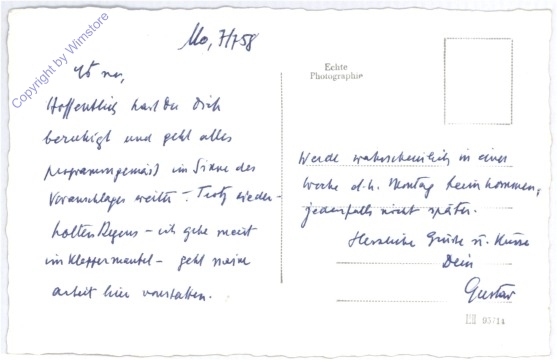 Mo, 7/7 58
Hoffentlich hast Du Dich
beruhigt und geht alles
programmgemäß im Sinne des
Voranschlages weiter. Trotz wieder-
holten Regens - ich gehe meist
im Kleppermantel - geht meine
Arbeit hier vonstatten.
Echte
Photographie
Werde wahrscheinlich in einer
Woche d.h. Montag heimkommen,
jedenfalls nicht später.
Herzliche Grüße u. Küsse
Dein
Gustav
03714
Copyright by Wimstore